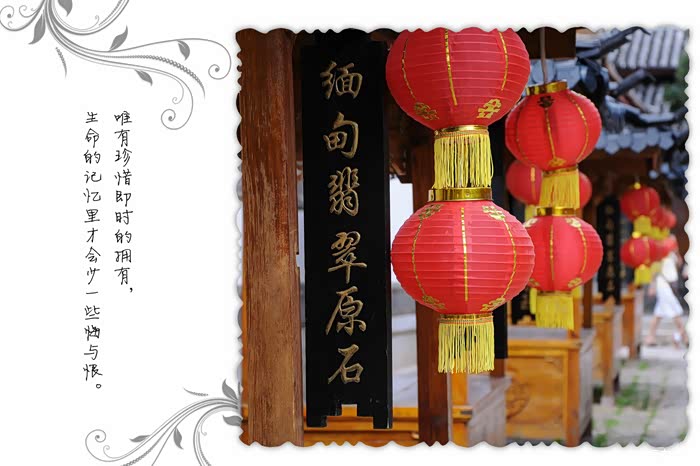 唯有珍惜即时的拥有，
生命的记忆里才会少一些悔与恨。
缅甸翡翠原石